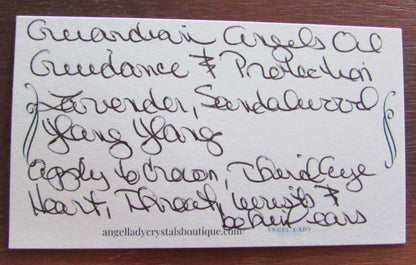 Guardian Angels Oil
Guidance & Protection
Lavender, Sandalwood
Ylang Ylang
Apply to Crown, Third Eye
Heart, Throat, wrists &
behind ears
angelladycrystalsboutique.com/
ANGEL LADY